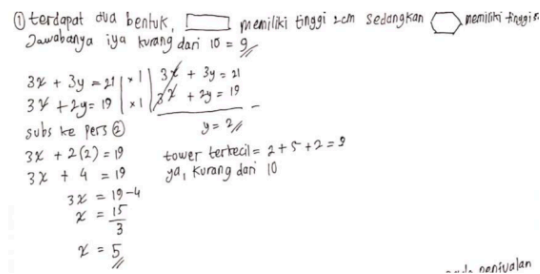 ① terdapat dua bentuk, memiliki tinggi 2cm sedangkan memiliki tinggi
Jawabanya iya kurang dari 10 = 9
3x + 3y = 21 | x 1 | 3x + 3y = 21
3x + 2y = 19 | x 1 | 3x + 2y = 19 -
subs ke pers ② y = 2
3x + 2(2) = 19 tower terkecil = 2 + 5 + 2 = 9
3x + 4 = 19 ya, kurang dari 10
3x = 19 - 4
x = 15
3
x = 5
penjualan